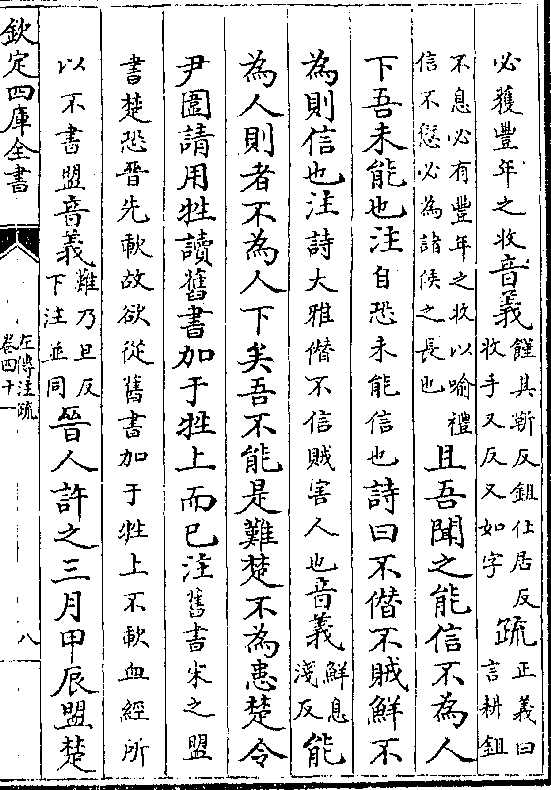 必獲豐年之收音義饉其靳反鉏仕居反
收手又反又如字疏正義曰
言耕鉏
不息必有豐年之收以喻禮
信不愆必為諸侯之長也且吾聞之能信不為人
下吾未能也注自恐未能信也詩曰不僭不賊鮮不
為則信也注詩大雅僭不信賊害人也音義鮮息
淺反能
為人則者不為人下矣吾不能是難楚不為患楚令
尹圍請用牲讀舊書加于牲上而已注舊書宋之盟
書楚恐晉先歃故欲從舊書加于牲上不歃血經所
以不書盟音義難乃旦反
下注並同晉人許之三月甲辰盟楚
欽定四庫全書
左傳注疏
卷四十一
八